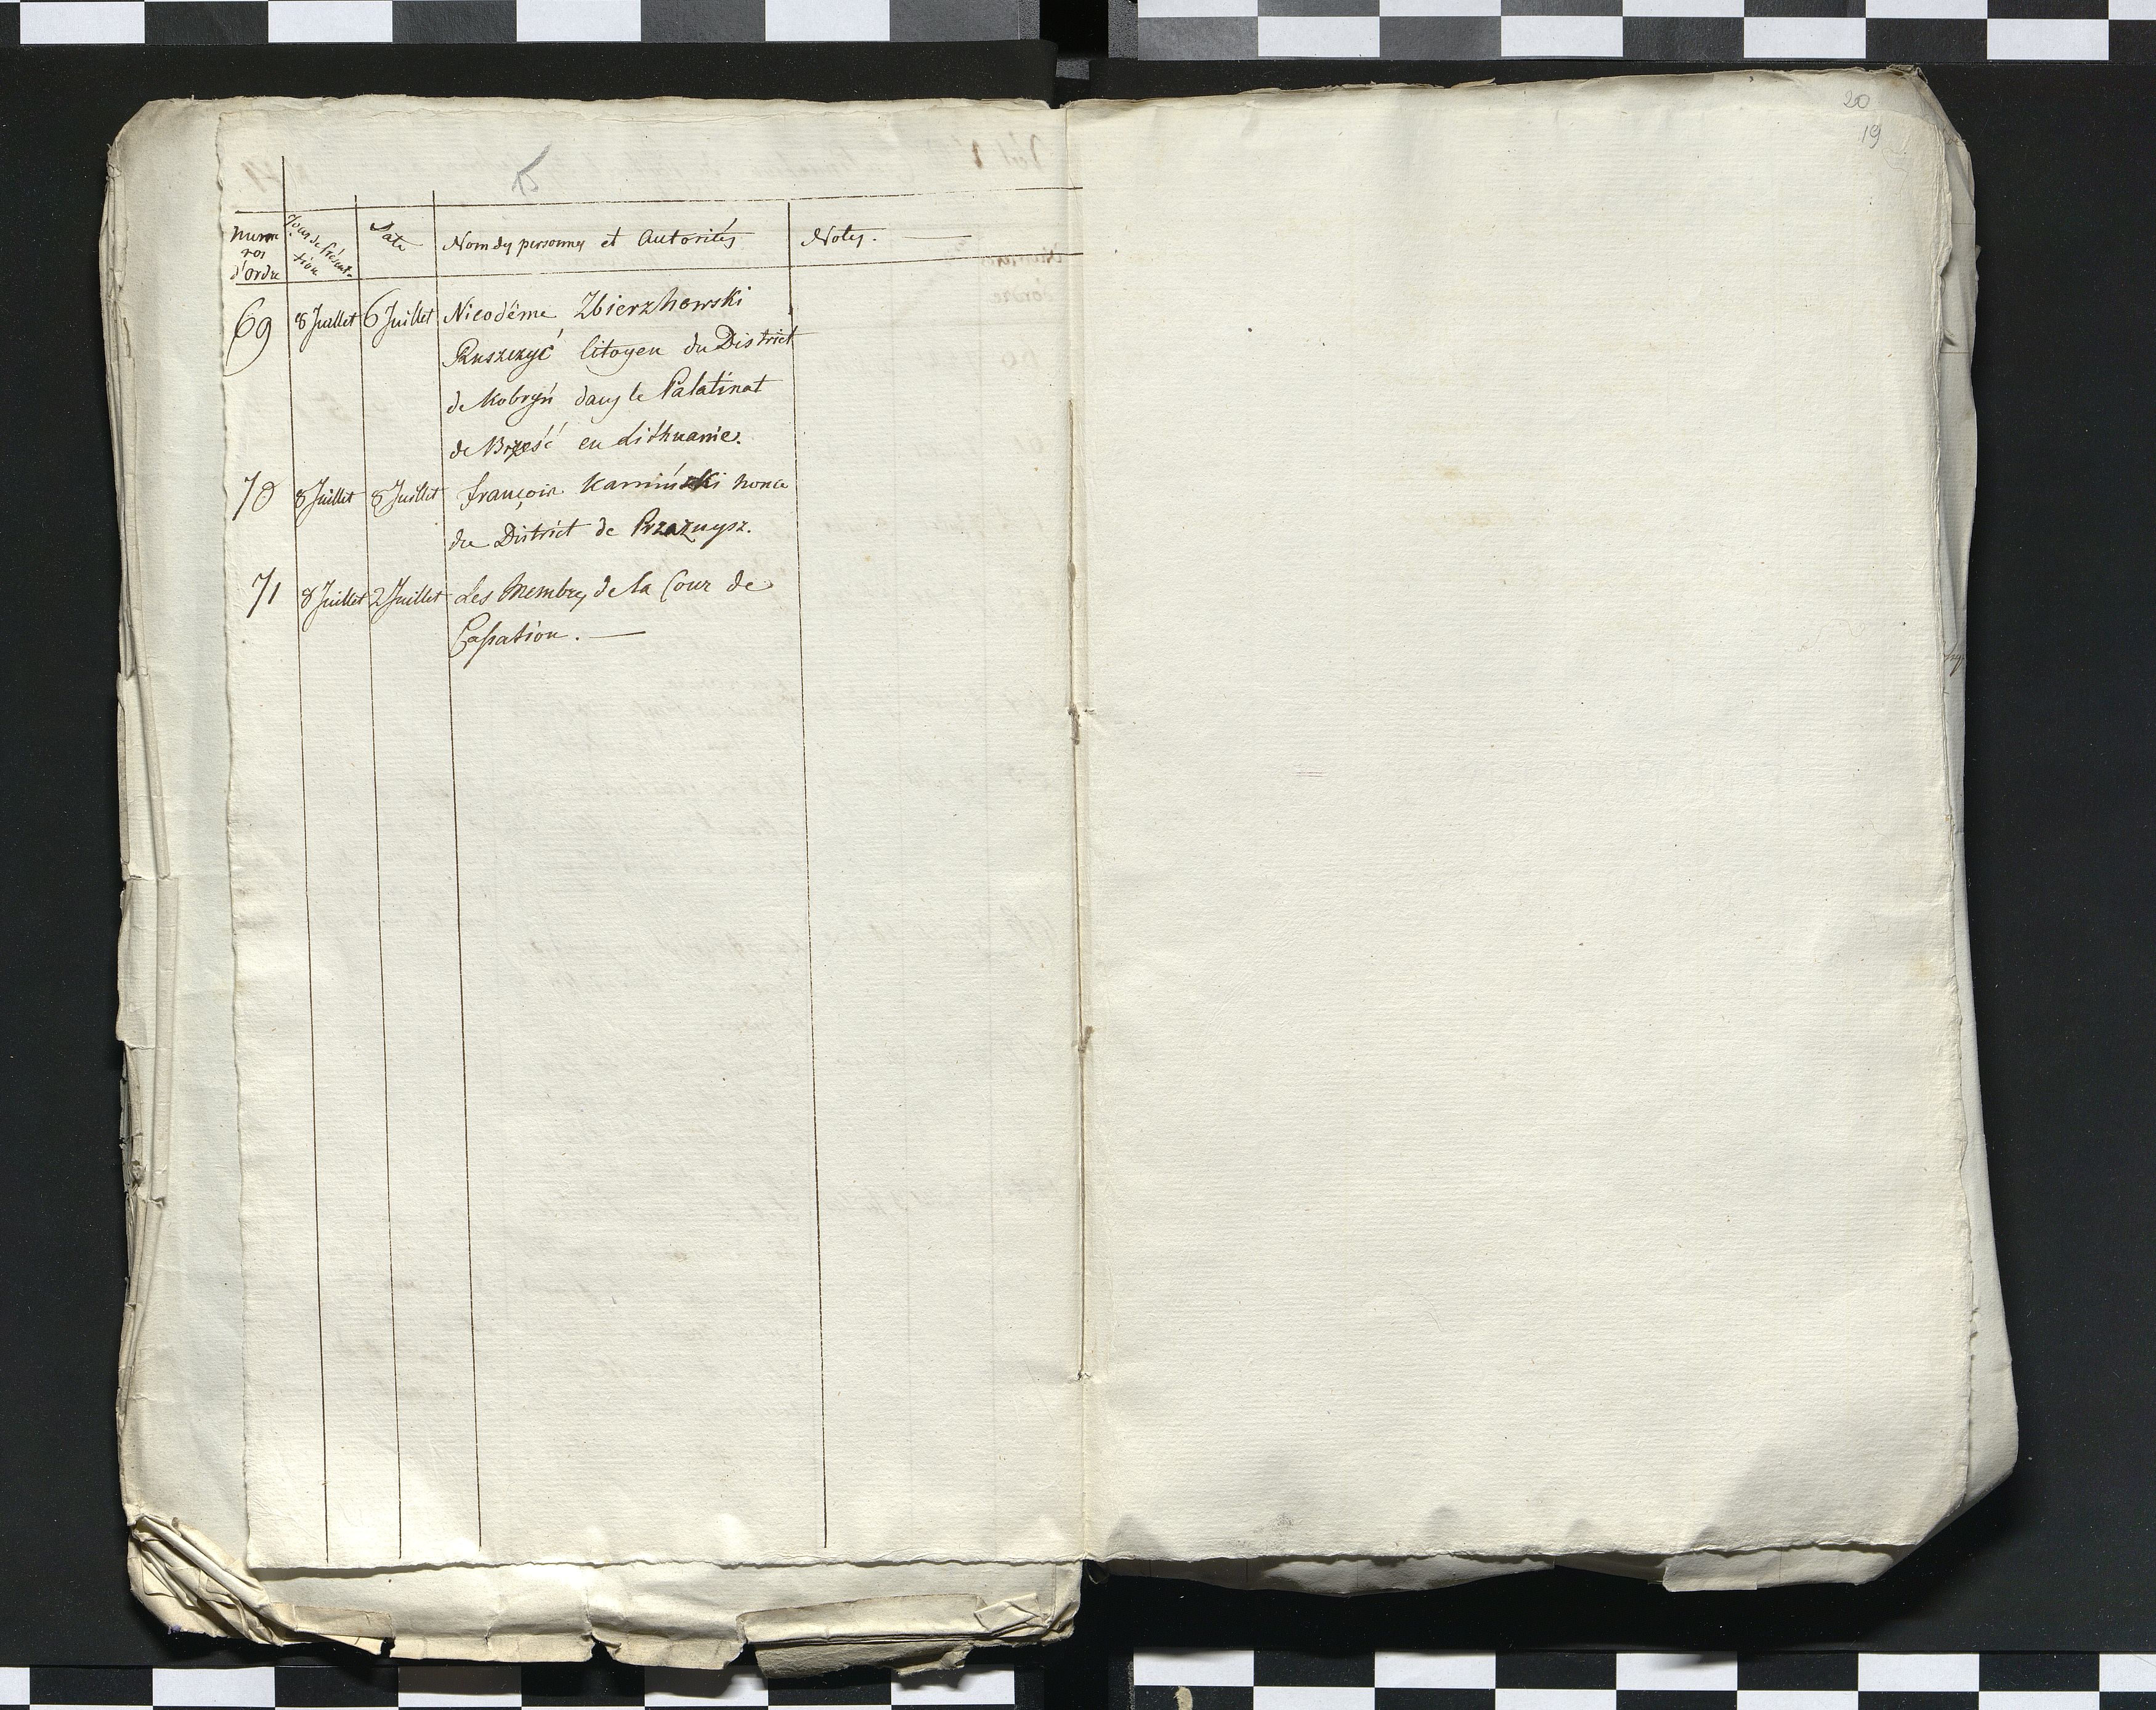 20
19
15
Nume
ros
d'ordre
Jour de Présenta-
tion
Date
Nom des personnes et Autorités
Notes. —
69 8 Juillet 6 Juillet Nicodême Zbierzhowski
Ruszczyć Citoyen du District
de Kobryń dans le Palatinat
de Brześć en Lithuanie.
70 8 Juillet 8 Juillet françois Kamiński nonce
du District de Przaznysz.
71 8 Juillet 2 Juillet Les Membres de la Cour de
Cassation. —